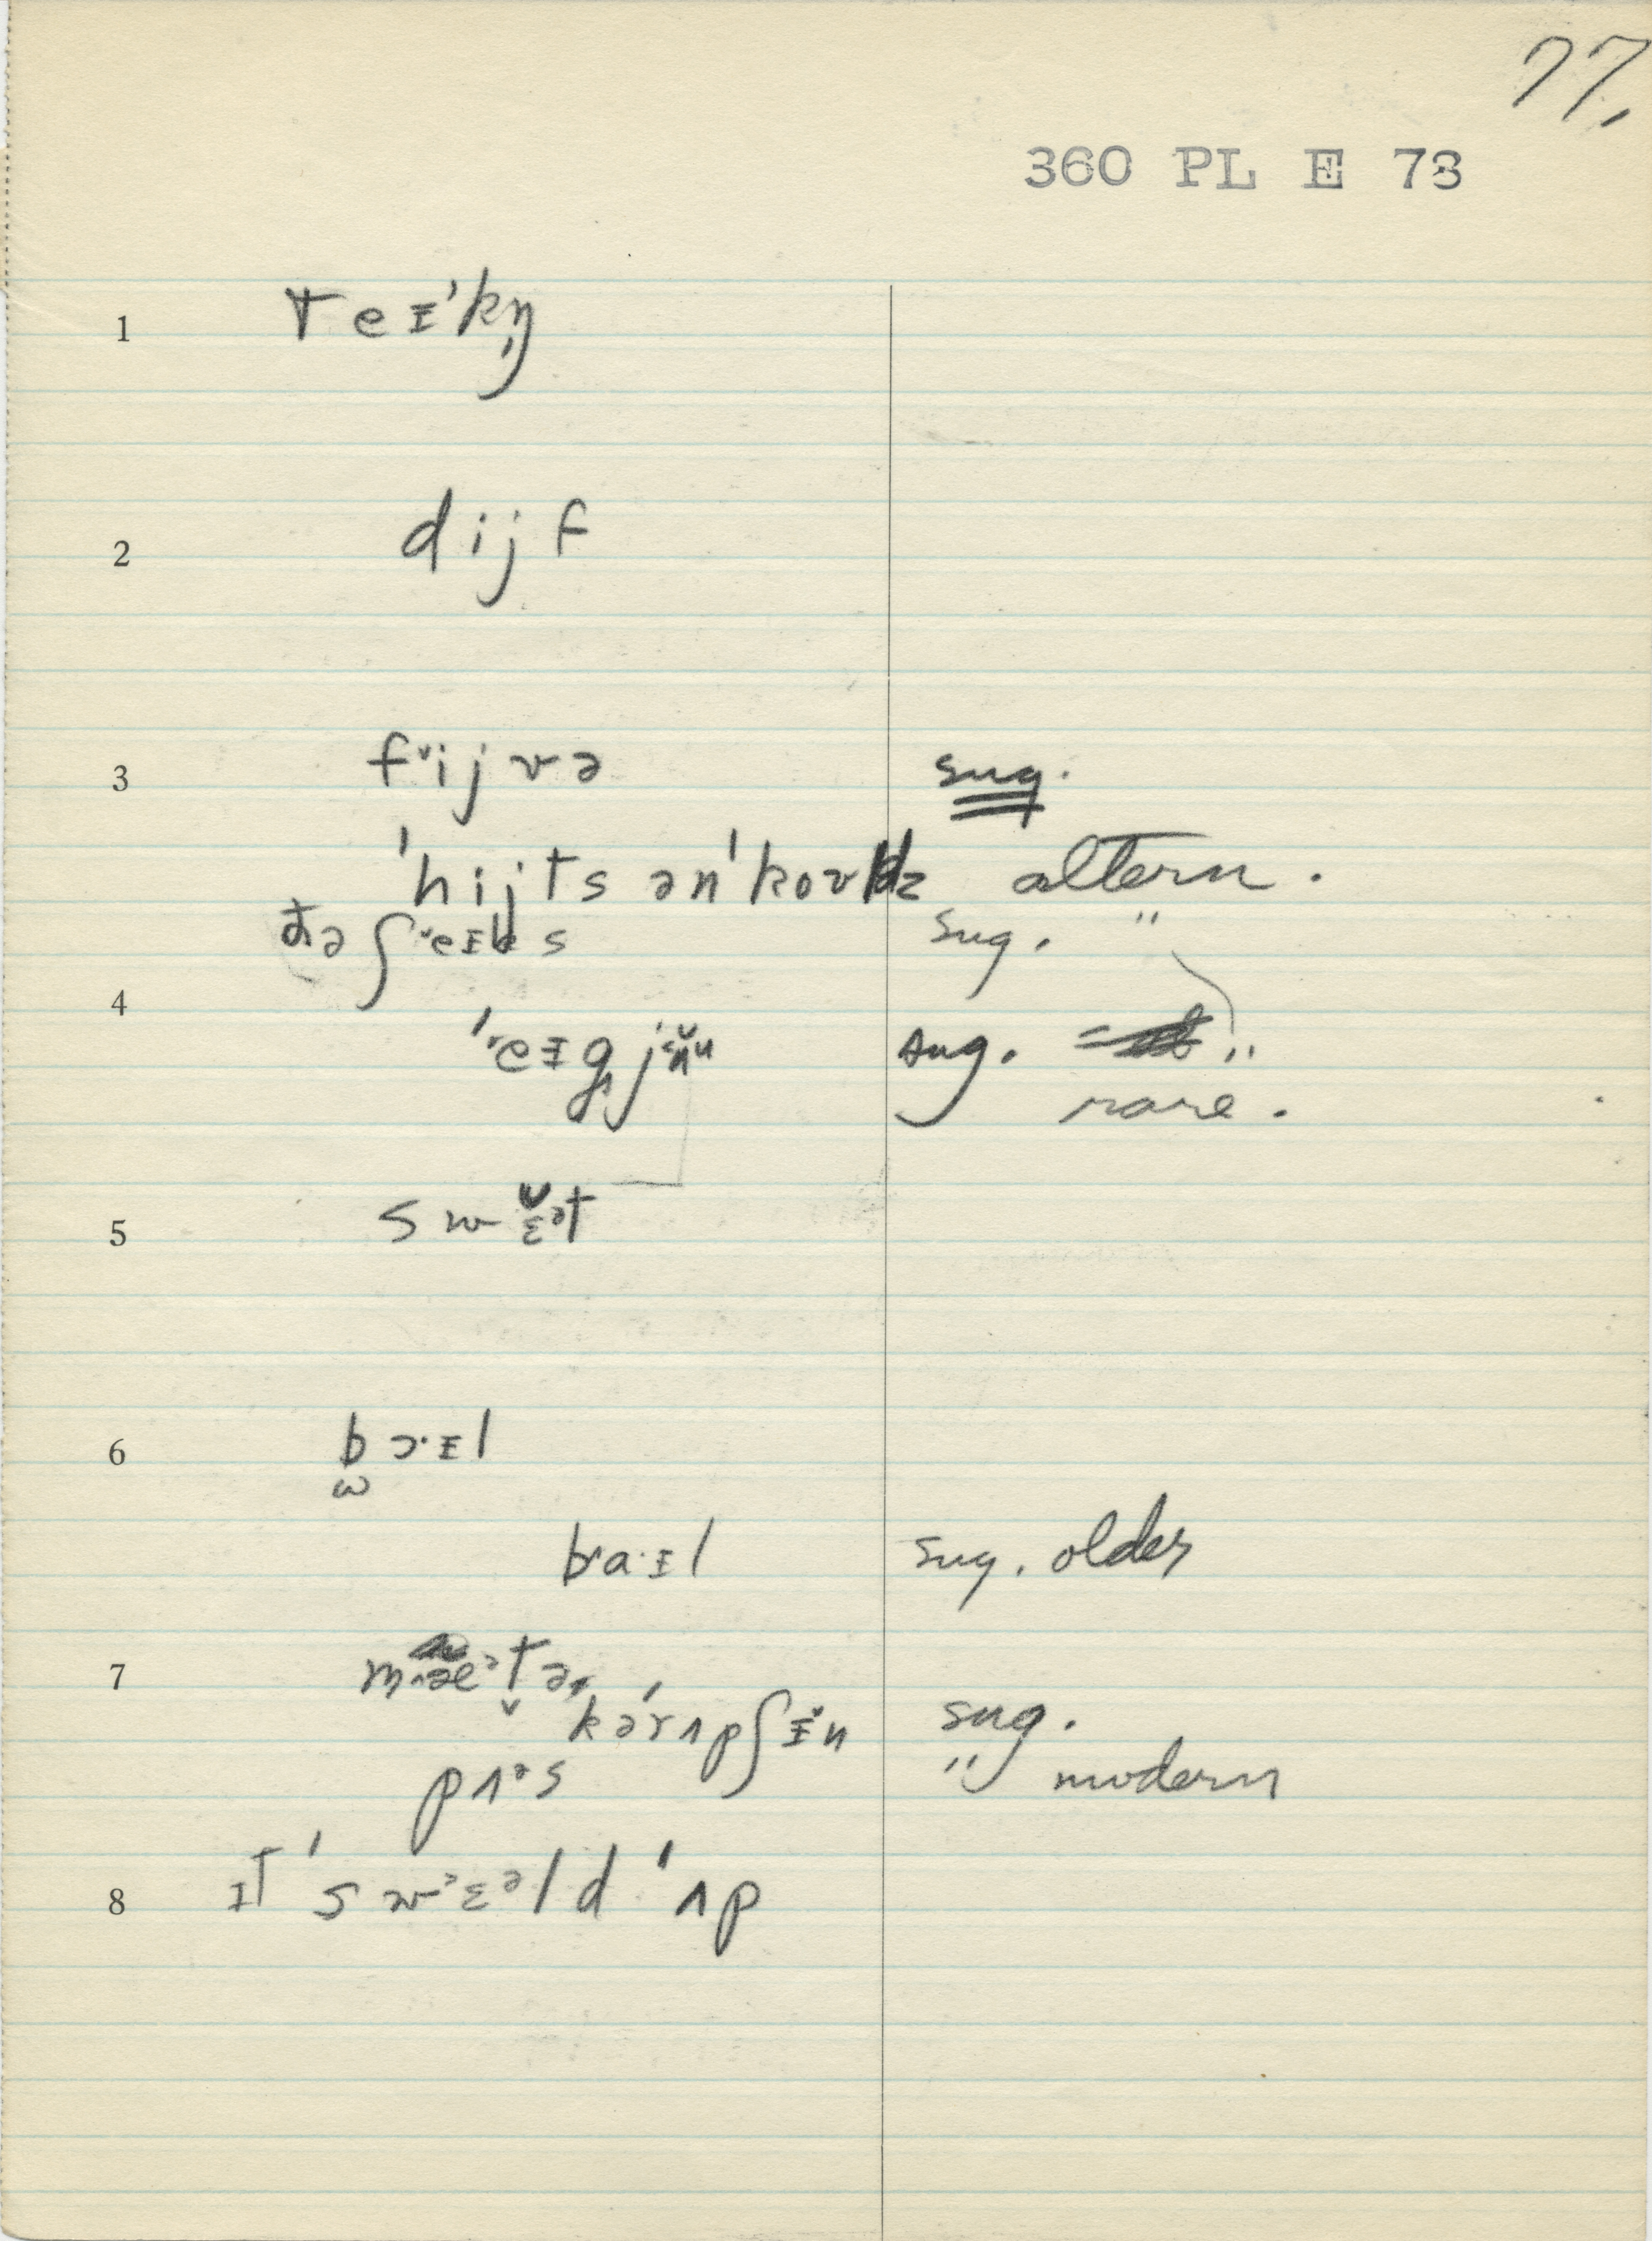 77.
360 PL E 73
1 teɪˈkn̩
2 dijf
3 f˅ijvə sug.
ˈhijts ənˈkovdz altern.
ðə ʃ˅eɪks sug. "
4 sug. "
rare.
5 swɛ̌ᵊt
6 bɔ·ɪl
ω
bʌa·ɪl sug. older
7 mʌæᵊt̬ə
kərʌpʃɪ̌n sug.
pʌᵊs " modern
8 ɪt ˈsw˃ɛᵊld ˈʌp